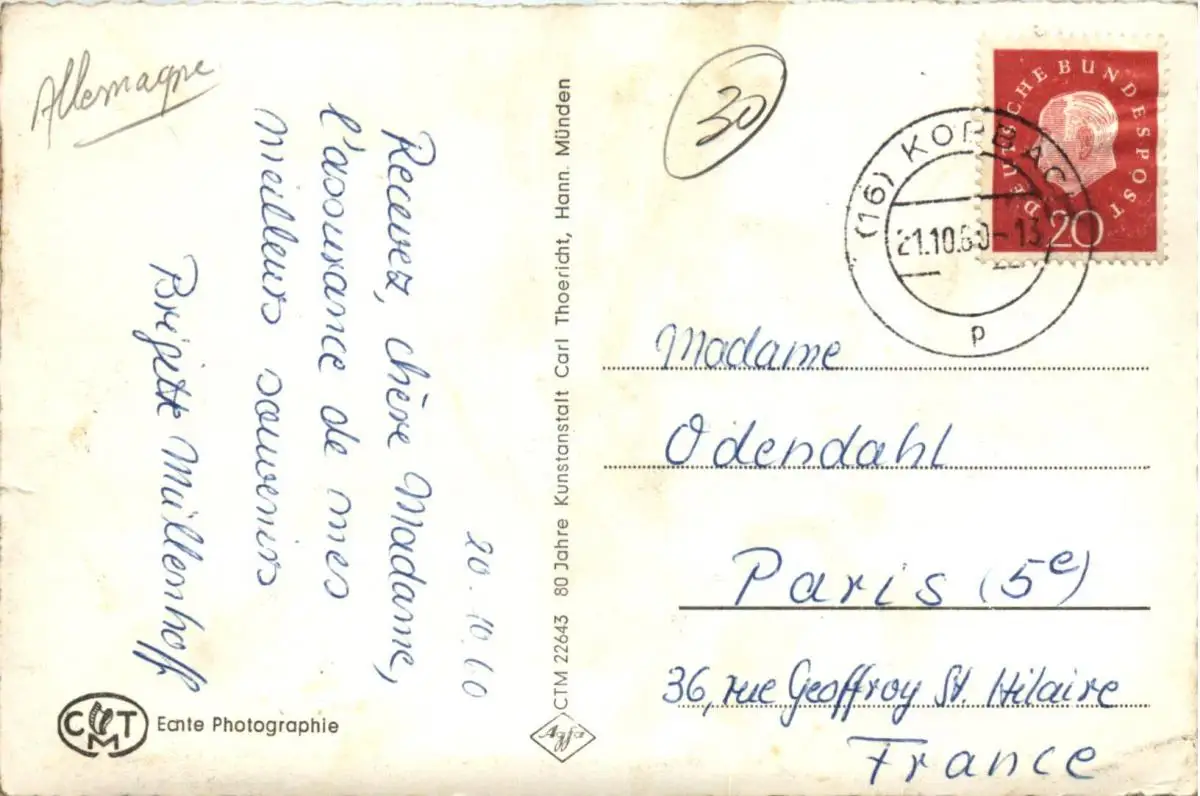 Allemagne
20.10.60
Recevez, chère Madame,
l'assurance de mes
meilleurs souvenirs
Brigitte Müllenhoff
CTM
Echte Photographie
CTM 22643 80 Jahre Kunstanstalt Carl Thoericht, Hann. Münden
Agfa
30
DEUTSCHE BUNDESPOST
20
(16) KORBACH
21.10.60-13
p
Madame
Odendahl
Paris (5e)
36, rue Geoffroy St. Hilaire
France